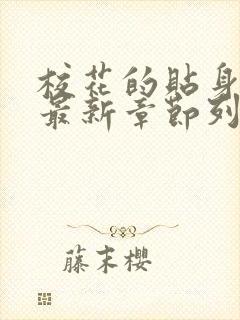 校花的貼身
最新章節列
藤末櫻